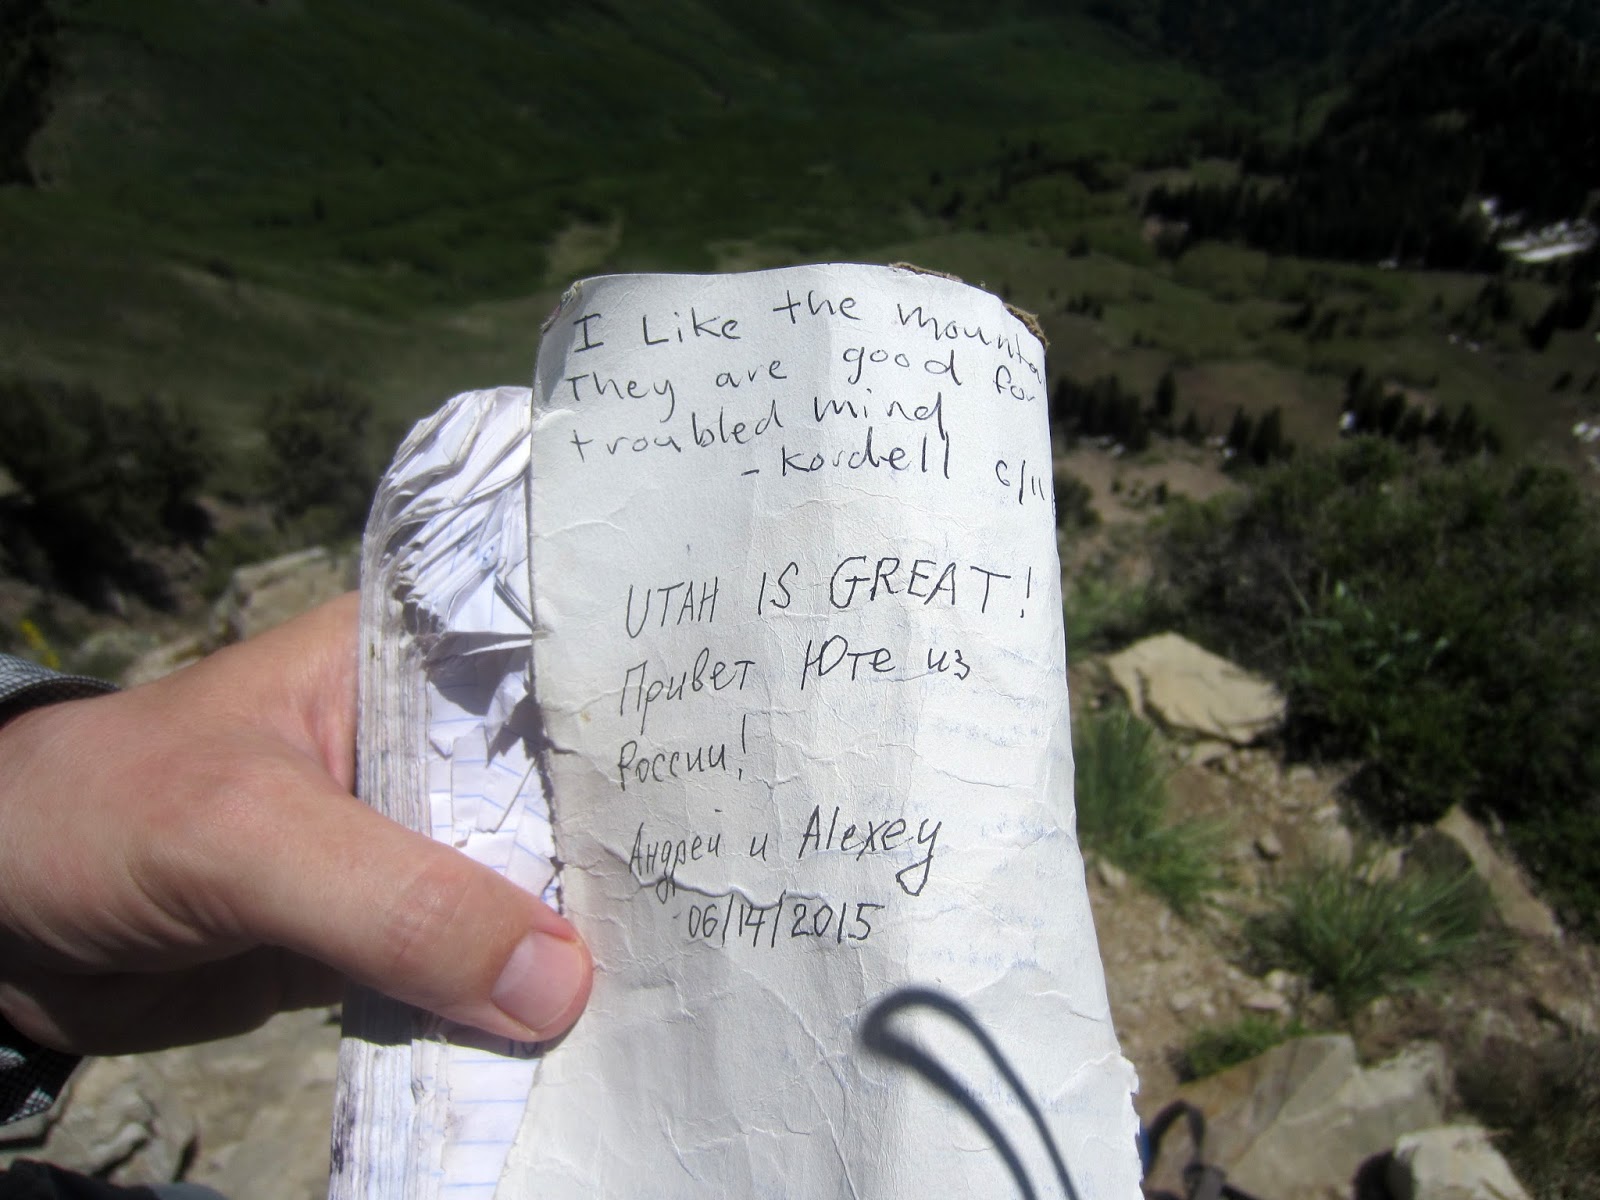 I Like the mounta
They are good for
troubled mind
- Kordell 6/11
UTAH IS GREAT!
Привет Юте из
России!
Андрей и Alexey
06/14/2015